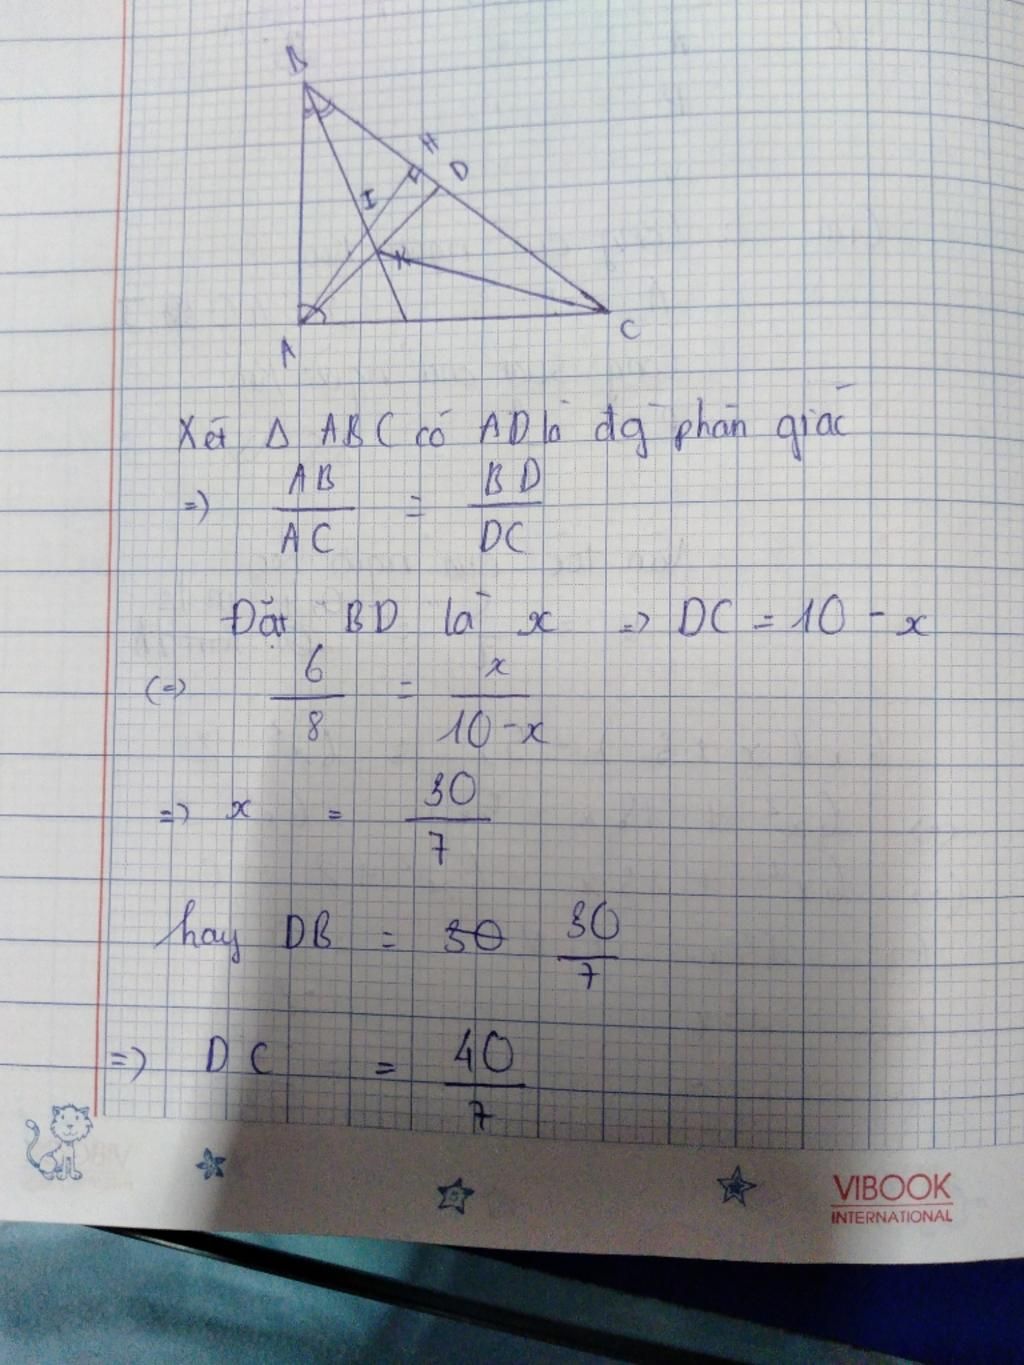 B
H
D
I
K
A
C
Xét Δ ABC có AD là đg phân giác
=> AB/AC = BD/DC
Đặt BD là x => DC = 10 - x
(=> 6/8 = x/10-x
=> x = 30/7
hay DB = 30 30/7
=> DC = 40/7
VIBOOK
INTERNATIONAL